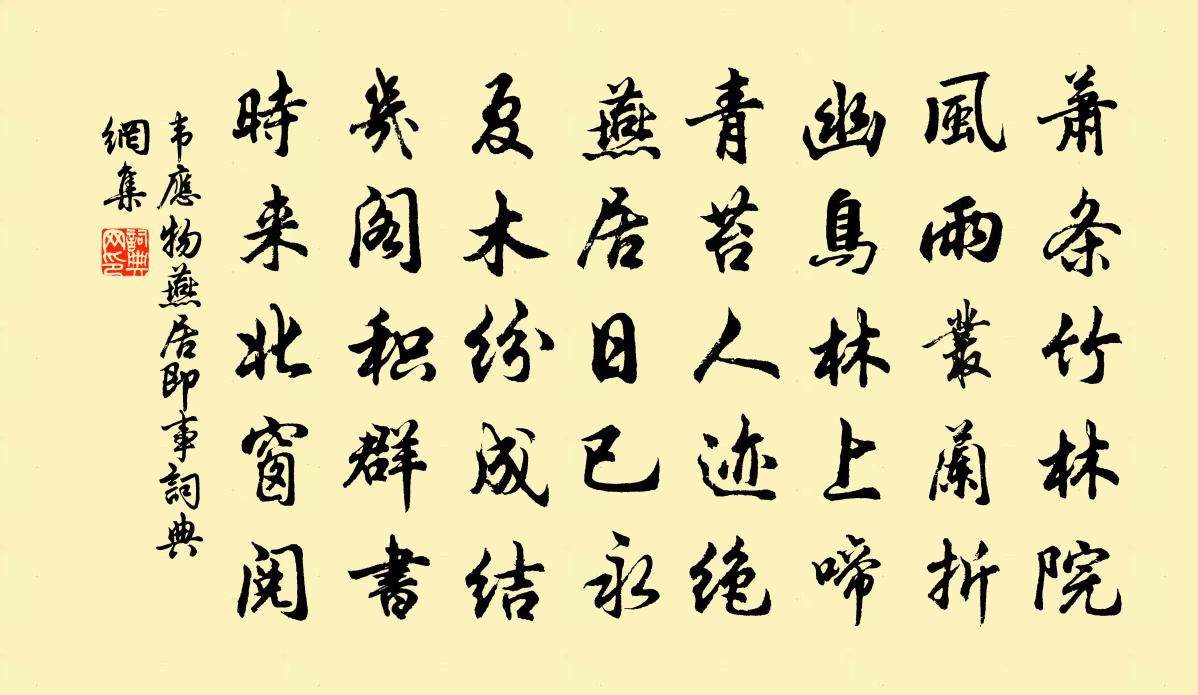 蕭条竹林院
風雨叢蘭折
幽鳥林上啼
青苔人迹绝
燕居日已永
夏木纷成结
几阁积群書
時来北窗阅
韦應物燕居即事詞典
網集
詞典网印